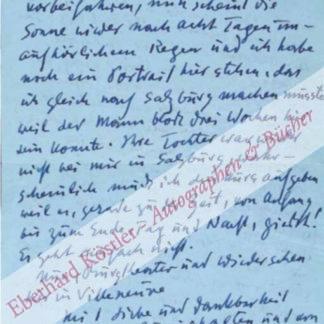 vorbeifahren, nun scheint die
Sonne wieder nach acht Tagen un-
aufhörlichem Regen und ich habe
noch ein Portrait hier stehen, das
ich gleich nach Salzburg machen musste
weil der Mann bloss drei Wochen hier
sein konnte. Ihre Tochter war
nicht bei mir in Salzburg
scheinlich muss ich Salzburg aufgeben
weil es, gerade zu der Zeit, von Anfang
bis zum Ende, Tag und Nacht, giesst.
Es geht einfach nicht.
und wiedersehen
in Villeneuve
mit Liebe und Dankbarkeit
Eberhard Köstler Autographen & Bücher